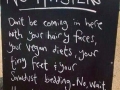 NO HIPSTERS
Don't be coming in here
with your hairy faces,
your vegan diets, your
tiny feet & your
sawdust bedding. No, wait